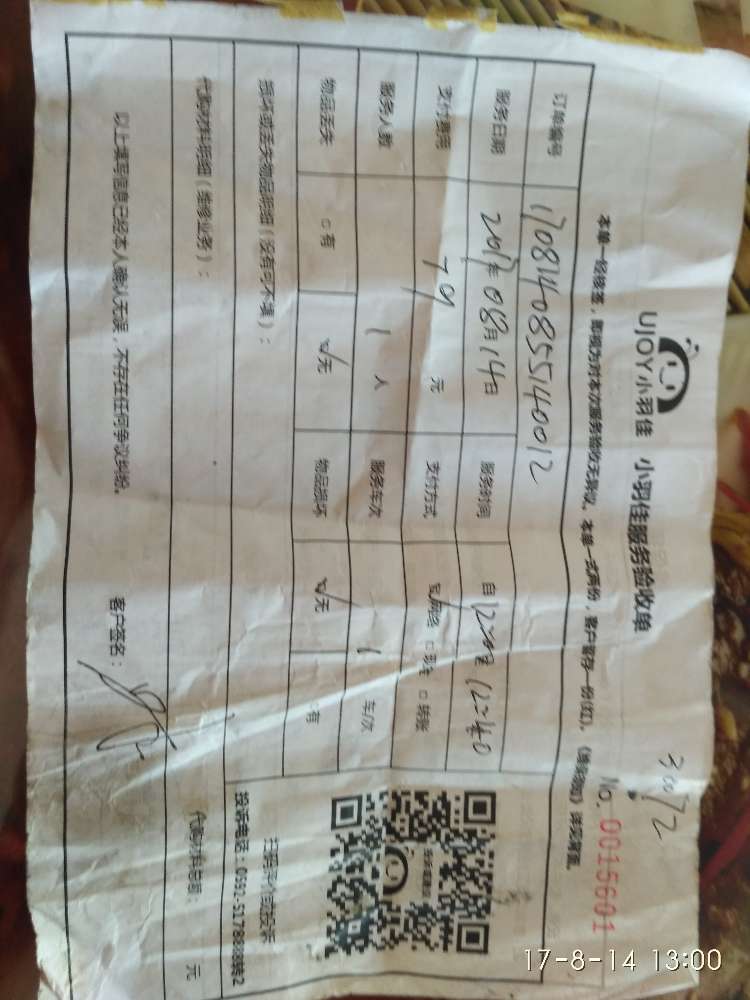 3072
UJOY小羽佳 小羽佳服务验收单
No. 0015601
本单一经接签，即视为对本次服务验收无异议。本单一式两份，客户留存一份(红)。
订单编号 1708140855140012
服务日期 2017年08月14日 服务时间 自12:00至12:40
支付费用 79 元 支付方式 ☑网络 □现金 □转账
服务人数 1 人 服务车次 1 车/次
物品丢失 □有 ☑无 物品损坏 ☑无 □有
损坏或丢失物品明细(没有可不填)：
扫码评价和投诉
投诉电话：0592-5178888转2
代购材料明细(维修业务)：
代购材料总额： 元
以上填写信息已经本人确认无误，不存在任何争议纠纷。
客户签名：
17-8-14 13:00